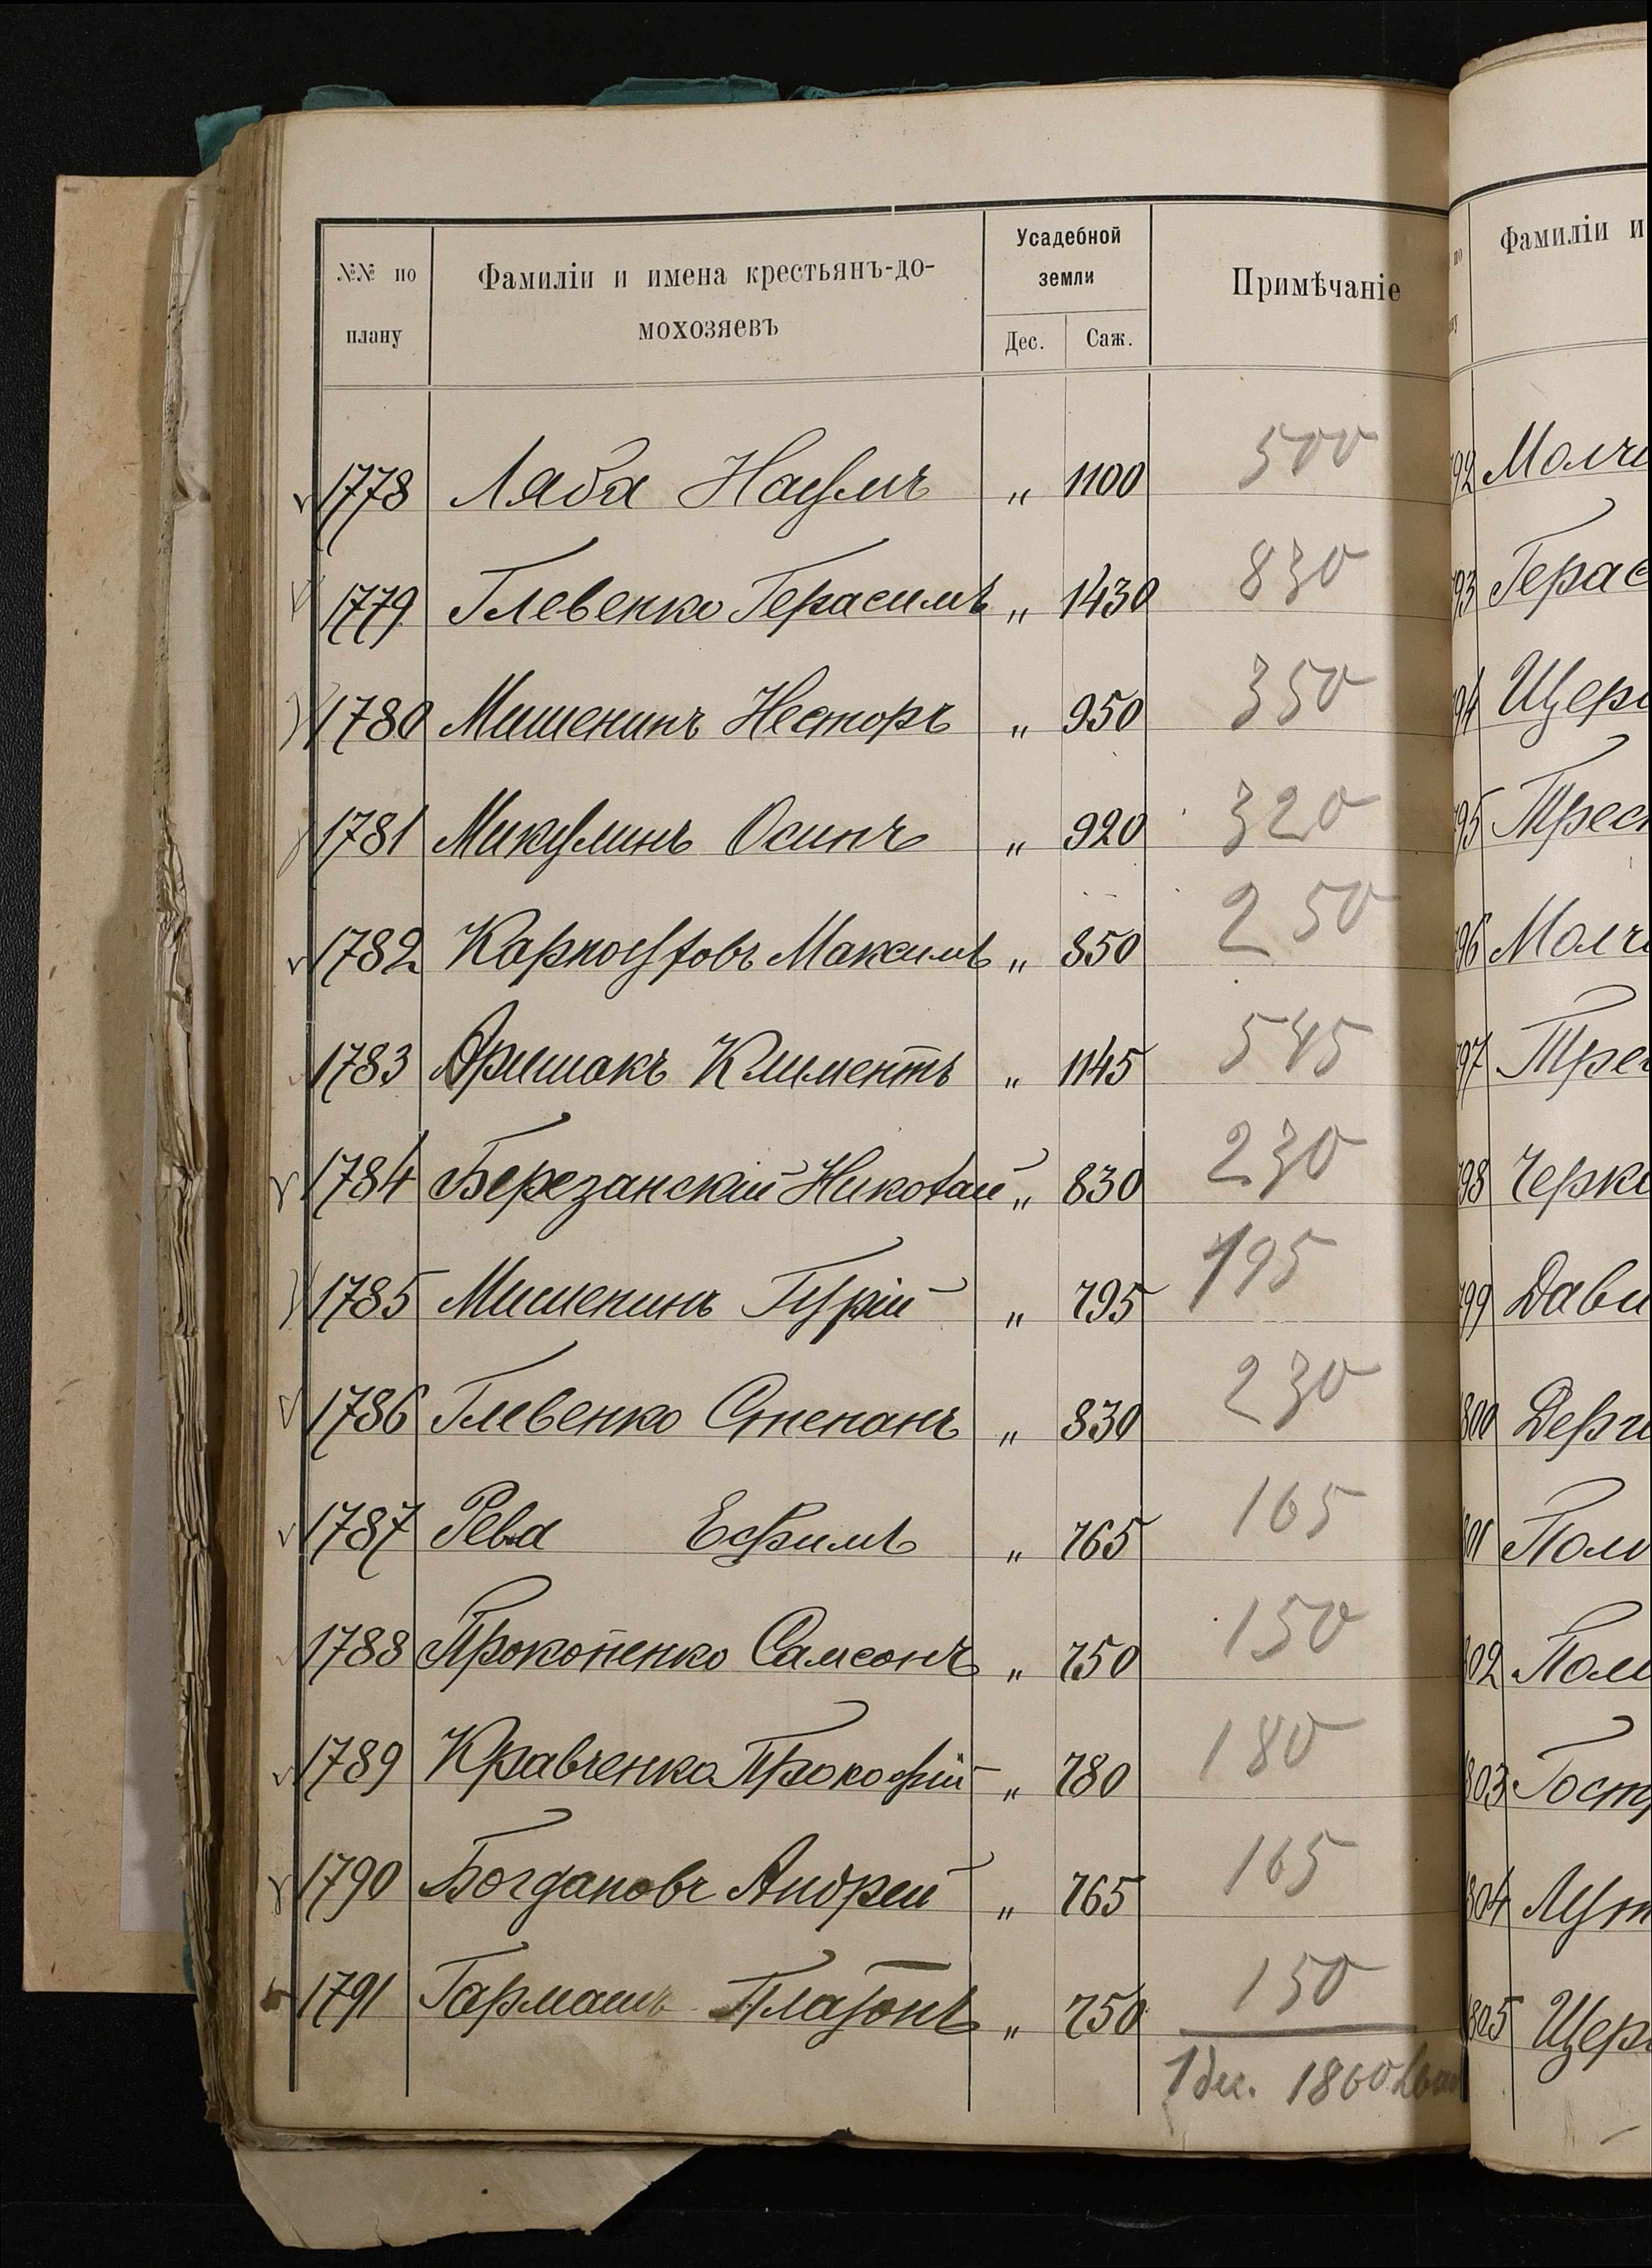 №№ по плану | Фамиліи и имена крестьянъ-домохозяевъ | Усадебной земли Дес. Саж. | Примѣчаніе
1778 Ляба Наумъ „ 1100 500
1779 Глевенко Герасимъ „ 1430 830
1780 Мишенинъ Несторъ „ 950 350
1781 Микулинъ Осипъ „ 920 320
1782 Карпоутовъ Максимъ „ 850 250
1783 Климентъ „ 1145 545
1784 Березанскій Николай „ 830 230
1785 Мишенинъ Гурій „ 795 195
1786 Глевенко Степанъ „ 830 230
1787 Рева Ефимъ „ 765 165
1788 Прокопенко Самсонъ „ 750 150
1789 Кравченко Прокофій „ 780 180
1790 Богдановъ Андрей „ 765 165
1791 Гармашъ Платонъ „ 750 150
1 дес. 1860
Фамиліи и
92 Молч
93 Герас
94 Щер
95 Трес
96 Молч
97 Тре
98 Черк
99 Дави
800 Дерг
801 Пол
802 Пол
803 Гост
804 Лут
805 Щер